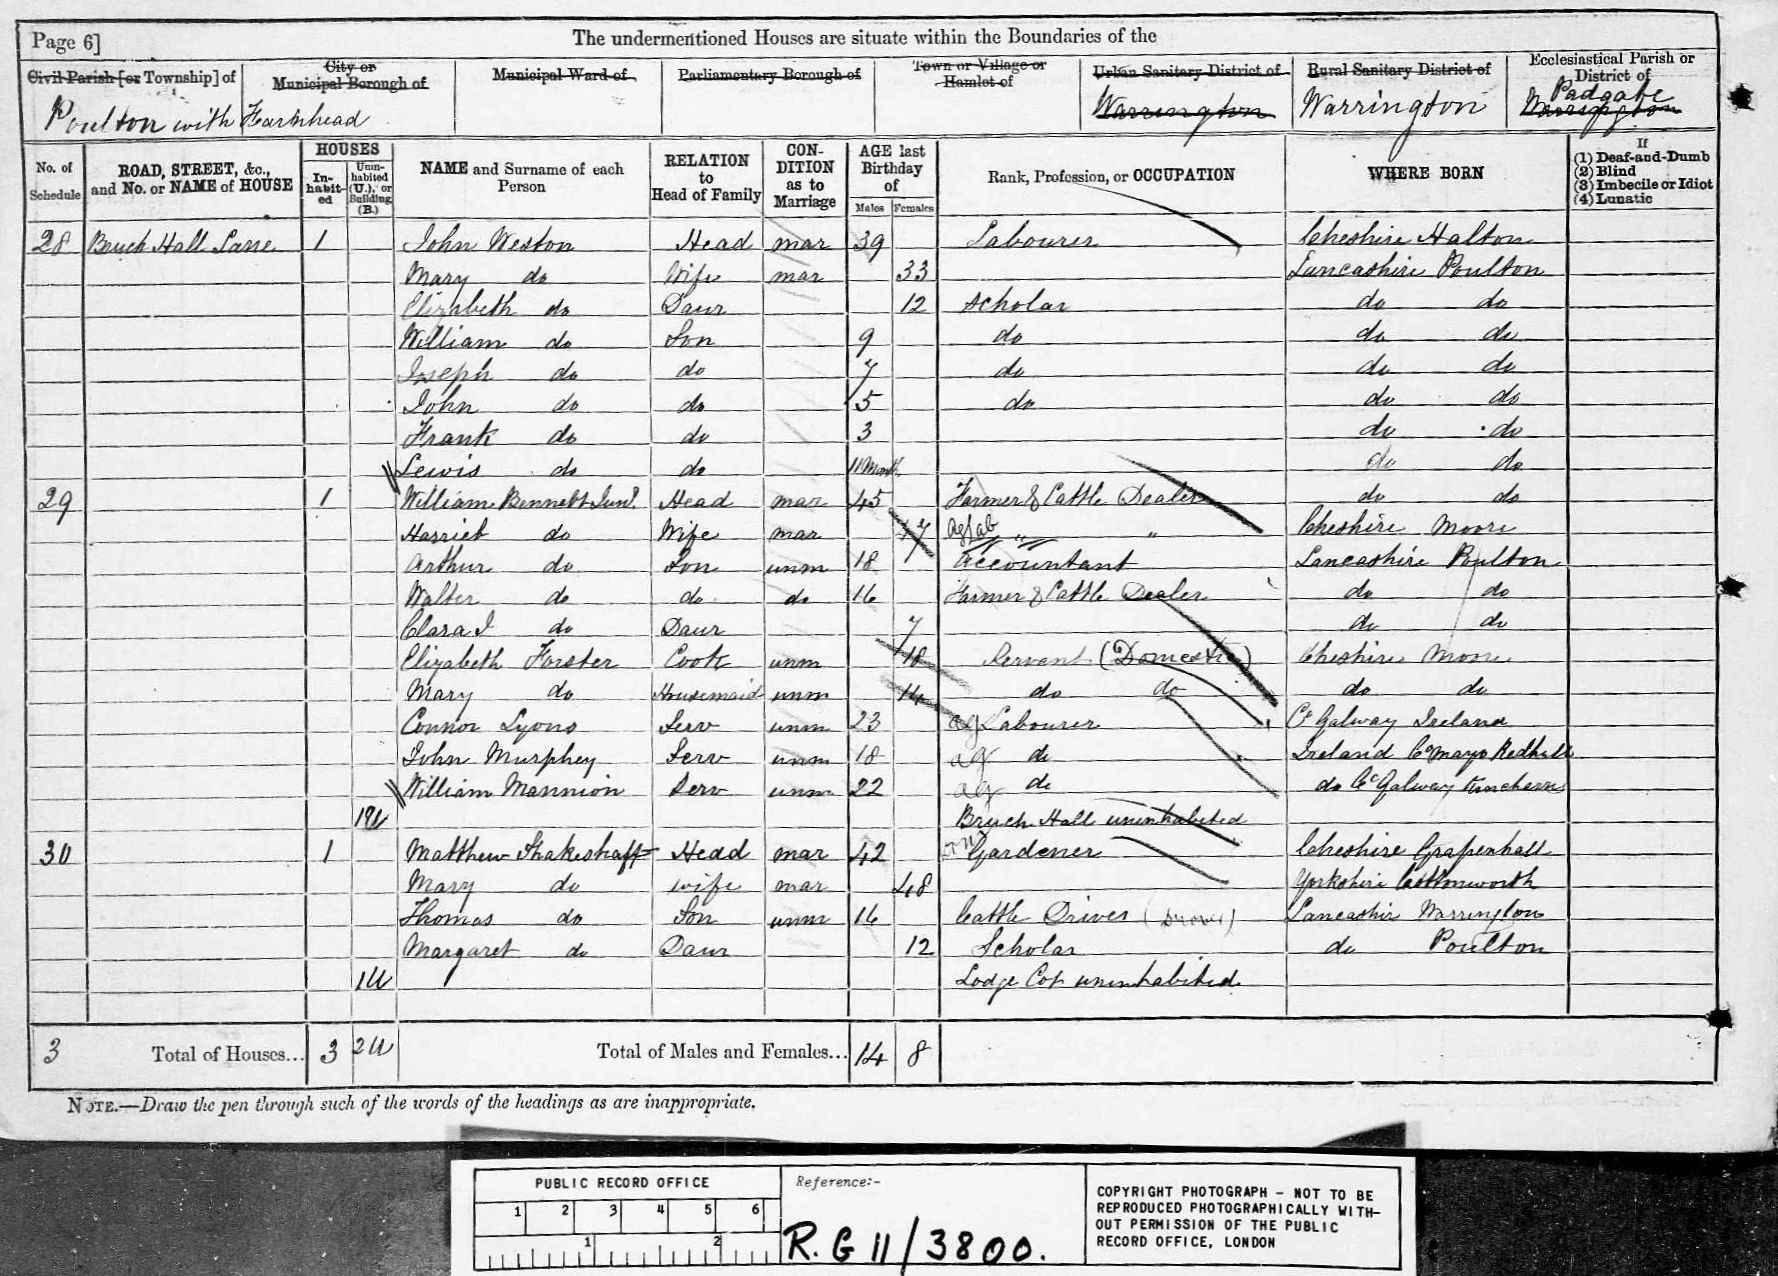 Page 6]
The undermentioned Houses are situate within the Boundaries of the
Civil Parish [or Township] of
City or Municipal Borough of
Municipal Ward of
Parliamentary Borough of
Town or Village or Hamlet of
Urban Sanitary District of
Rural Sanitary District of
Ecclesiastical Parish or District of
Poulton with Fearnhead
Warrington
Warrington
Padgate
Warrington
No. of Schedule
ROAD, STREET, &c., and No. or NAME of HOUSE
HOUSES
In-habit-ed
Unin-habited (U.), or Building (B.)
NAME and Surname of each Person
RELATION to Head of Family
CON-DITION as to Marriage
AGE last Birthday of
Males Females
Rank, Profession, or OCCUPATION
WHERE BORN
If
(1) Deaf-and-Dumb
(2) Blind
(3) Imbecile or Idiot
(4) Lunatic
28 Bruch Hall Lane 1 John Weston Head mar 39 Labourer Cheshire Halton
Mary do Wife mar 33 Lancashire Poulton
Elizabeth do Daur 12 Scholar do do
William do Son 9 do do do
Joseph do do 7 do do do
John do do 5 do do do
Frank do do 3 do do
Lewis do do 11 Month do do
29 1 William Bennett Junr. Head mar 45 Farmer & Cattle Dealer do do
Harriet do Wife mar 47 ag lab " " Cheshire Moore
Arthur do Son unm 18 Accountant Lancashire Poulton
Walter do do do 16 Farmer & Cattle Dealer do do
Clara J do Daur 7 do do
Elizabeth Forster Cook unm 18 Servant (Domestic) Cheshire Moore
Mary do Housemaid unm 14 do do do do
Connor Lyons Serv unm 23 ag Labourer Co Galway Ireland
John Murphey Serv unm 18 ag do Ireland Co Mayo Redhill
William Mannion Serv unm 22 ag do do Co Galway
1U Bruch Hall uninhabited
30 1 Matthew Shakeshaft Head mar 42 Gardener Cheshire Grapenhall
Mary do wife mar 48 Yorkshire
Thomas do Son unm 16 Cattle Driver (Drover) Lancashir Warrington
Margaret do Daur 12 Scholar do Poulton
1U Lodge Cot uninhabited
3 Total of Houses... 3 2U Total of Males and Females... 14 8
NOTE.—Draw the pen through such of the words of the headings as are inappropriate.
PUBLIC RECORD OFFICE
1 2 3 4 5 6
1 2
Reference:-
R.G 11/3800.
COPYRIGHT PHOTOGRAPH - NOT TO BE
REPRODUCED PHOTOGRAPHICALLY WITH-
OUT PERMISSION OF THE PUBLIC
RECORD OFFICE, LONDON